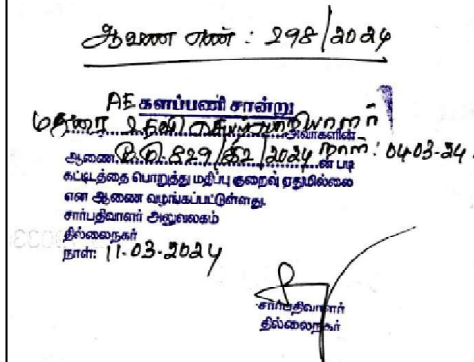 ஆவண எண் : 298/2024
AE களப்பணி சான்று
மதுரை உதவி செயற்பொறியாளர் அவர்களின்
ஆணை 829/ /2024 நாள்: 04-03-24 ன் படி
கட்டிடத்தை பொறுத்து மதிப்பு குறைவு ஏதுமில்லை
என ஆணை வழங்கப்பட்டுள்ளது.
சார்பதிவாளர் அலுவலகம்
தில்லைநகர்
நாள்: 11-03-2024
சார்பதிவாளர்
தில்லைநகர்